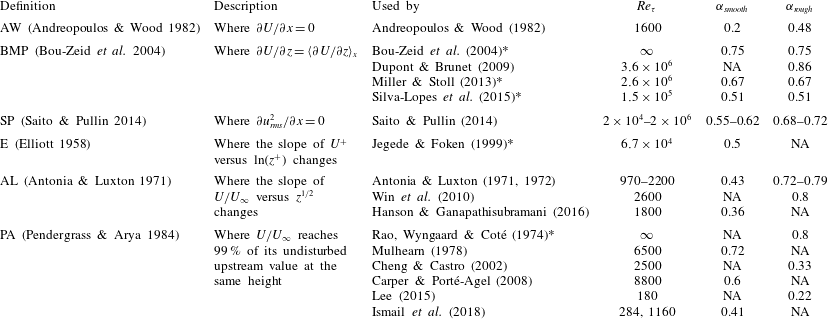 Definition Description Used by Reτ αsmooth αrough
AW (Andreopoulos & Wood 1982) Where ∂U/∂x = 0 Andreopoulos & Wood (1982) 1600 0.2 0.48
BMP (Bou-Zeid et al. 2004) Where ∂U/∂z = ⟨∂U/∂z⟩x Bou-Zeid et al. (2004)* ∞ 0.75 0.75
Dupont & Brunet (2009) 3.6 × 10⁶ NA 0.86
Miller & Stoll (2013)* 2.6 × 10⁶ 0.67 0.67
Silva-Lopes et al. (2015)* 1.5 × 10⁵ 0.51 0.51
SP (Saito & Pullin 2014) Where ∂u²rms/∂x = 0 Saito & Pullin (2014) 2 × 10⁴–2 × 10⁶ 0.55–0.62 0.68–0.72
E (Elliott 1958) Where the slope of U⁺ Jegede & Foken (1999)* 6.7 × 10⁴ 0.5 NA
versus ln(z⁺) changes
AL (Antonia & Luxton 1971) Where the slope of Antonia & Luxton (1971, 1972) 970–2200 0.43 0.72–0.79
U/U∞ versus z¹/² Win et al. (2010) 2600 NA 0.8
changes Hanson & Ganapathisubramani (2016) 1800 0.36 NA
PA (Pendergrass & Arya 1984) Where U/U∞ reaches Rao, Wyngaard & Coté (1974)* ∞ NA 0.8
99 % of its undisturbed Mulhearn (1978) 6500 0.72 NA
upstream value at the Cheng & Castro (2002) 2500 NA 0.33
same height Carper & Porté-Agel (2008) 8800 0.6 NA
Lee (2015) 180 NA 0.22
Ismail et al. (2018) 284, 1160 0.41 NA